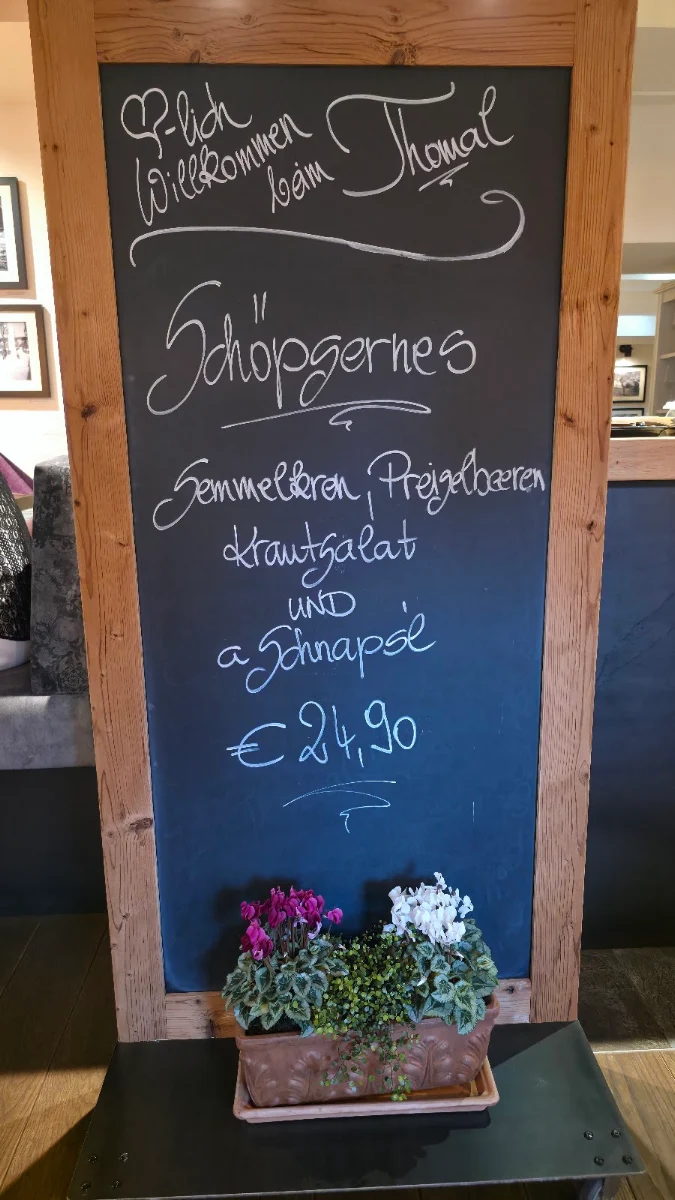 ♡-lich
Willkommen
beim Thomal
Schöpsernes
Semmelkren, Preiselbeeren
Krautsalat
UND
a Schnaps'l
€ 24,90